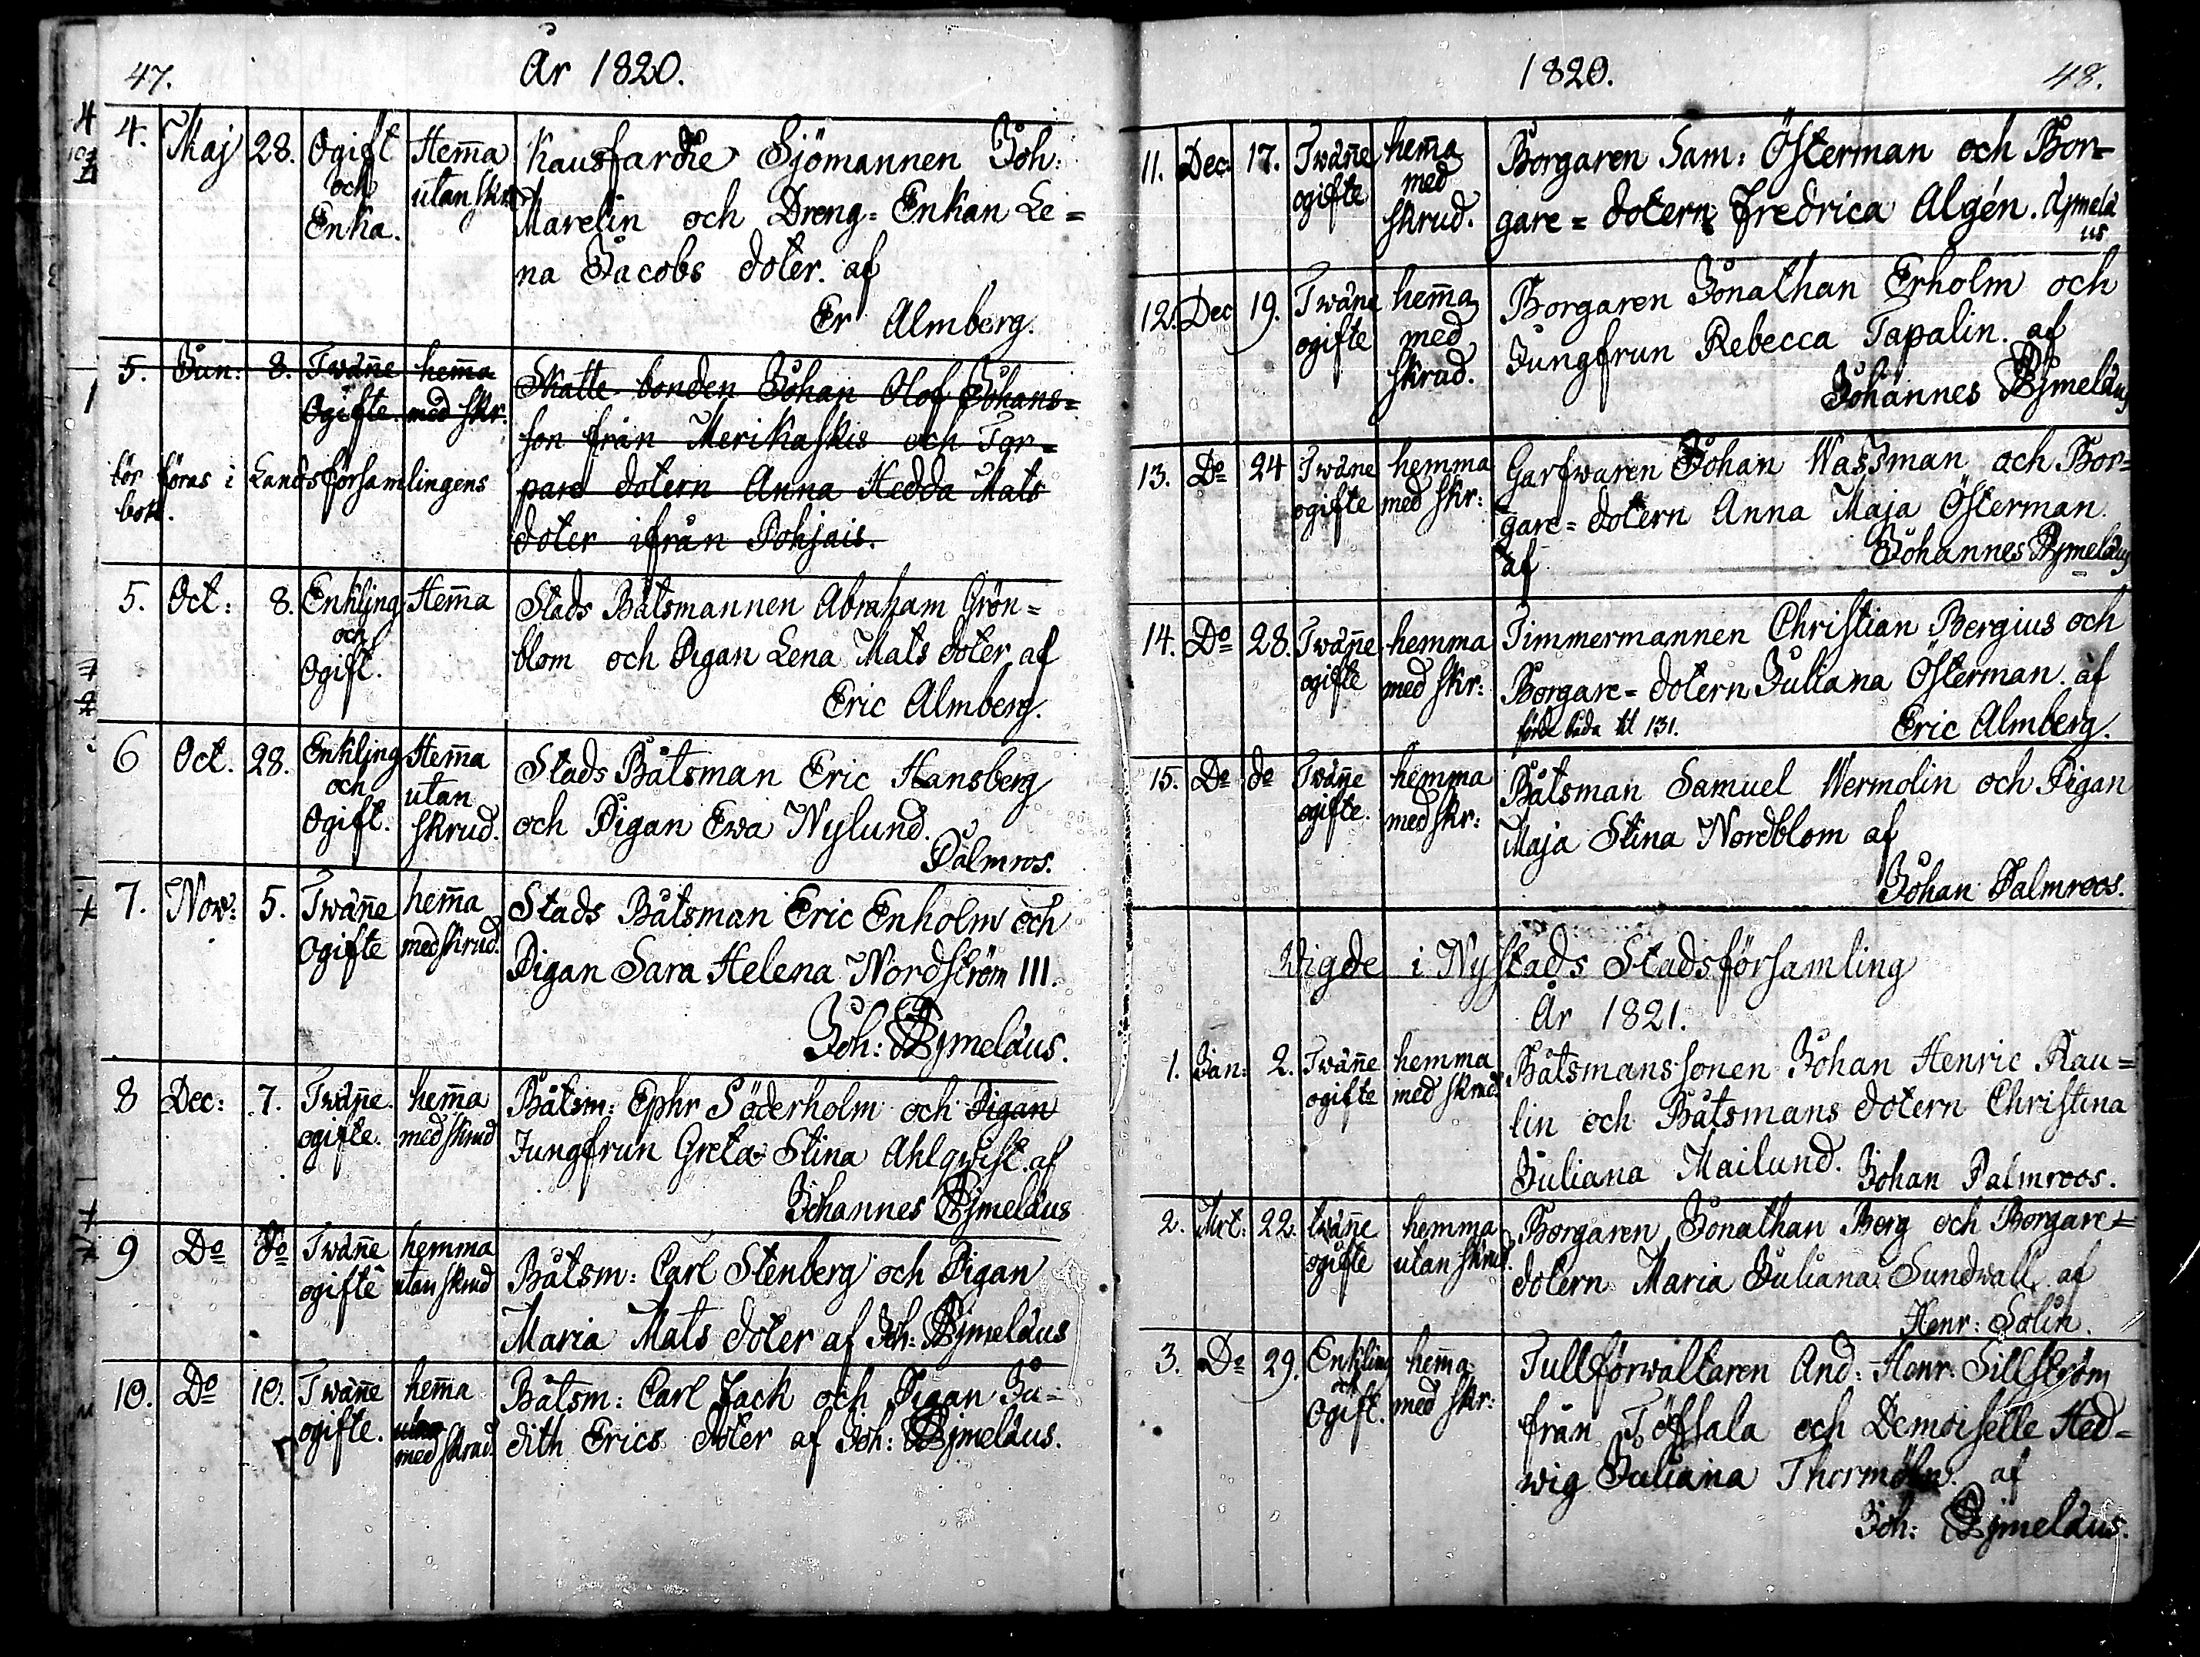 47.
År 1820.
4. Maj 28. Ogift och Enka. Hem̄a utan skr. Kausfardie Sjömannen Joh:
Marelin och Dreng= Enkan Le=
na Jacobs doter. af
Er Almberg.
5. Jun: 8. Twän̄e Ogifte. hem̄a med skr. Skatte bonden Johan Olof Johans=
son från Merikaskis och Tor=
pare dotern Anna Hedda Mats
doter ifrån Pohjais.
bör föras i Landsförsamlingens
bok.
5. Oct: 8. Enkling och Ogift. Hem̄a Stads Båtsmannen Abraham Grön=
blom och Pigan Lena Mats doter af
Eric Almberg.
6 Oct. 28. Enkling och Ogift. Hem̄a utan skrud. Stads Båtsman Eric Hansberg
och Pigan Ewa Nylund.
Palmros.
7. Now: 5. Twän̄e Ogifte hem̄a med skrud. Stads Båtsman Eric Enholm och
Pigan Sara Helena Nordström 111.
Joh: Bjmeläus.
8 Dec: 7. Twän̄e ogifte. hem̄a med skrud Båtsm: Ephr Söderholm och Pigan
Jungfrun Greta Stina Ahlqwist. af
Johannes Bjmeläus
9 Do do Twän̄e ogifte hemma utan skrud Båtsm: Carl Stenberg och Pigan
Maria Mats doter af Joh: Bjmeläus
10. Do 10. Twän̄e ogifte. hem̄a utan med skrud. Båtsm: Carl Jack och Pigan Ju=
dith Erics doter af Joh: Bjmeläus.
1820.
48.
11. Dec: 17. Twän̄e ogifte hem̄a med skrud. Borgaren Sam: Österman och Bor=
gare= dotern Fredrica Algén. Bjmelä
us
12. Dec 19. Twäne ogifte hem̄a med skrud. Borgaren Jonathan Erholm och
Jungfrun Rebecca Tapalin. af
Johannes Bjmeläus
13. Do 24 Twäne ogifte hemma med skr: Garfwaren Johan Wassman och Bor=
gare= dotern Anna Maja Österman.
af Johannes Bjmeläus
14. Do 28. Twän̄e ogifte hemma med skr: Timmermannen Christian Bergius och
Borgare= dotern Juliana Österman. af
förde båda til 131. Eric Almberg.
15. Do do Twän̄e ogifte. hemma med skr: Båtsman Samuel Wermolin och Pigan
Maja Stina Nordblom af
Johan Palmroos.
Wigde i Nystads Stadsförsamling
År 1821.
1. Jan: 2. Twän̄e ogifte hemma med skrud. Båtsmans sonen Johan Henric Rau=
lin och Båtsmans dotern Christina
Juliana Mailund. Johan Palmroos.
2. Mrt: 22. twän̄e ogifte hemma utan skrud. Borgaren Jonathan Berg och Borgare=
dotern Maria Juliana Sundwall af
Henr: Solin.
3. Do 29. Enkling och Ogift. hem̄a med skr: Tullförwaltaren And: Henr: Sillström
från Töfsala och Demoiselle Hed=
wig Juliana af
Joh: Bjmeläus.